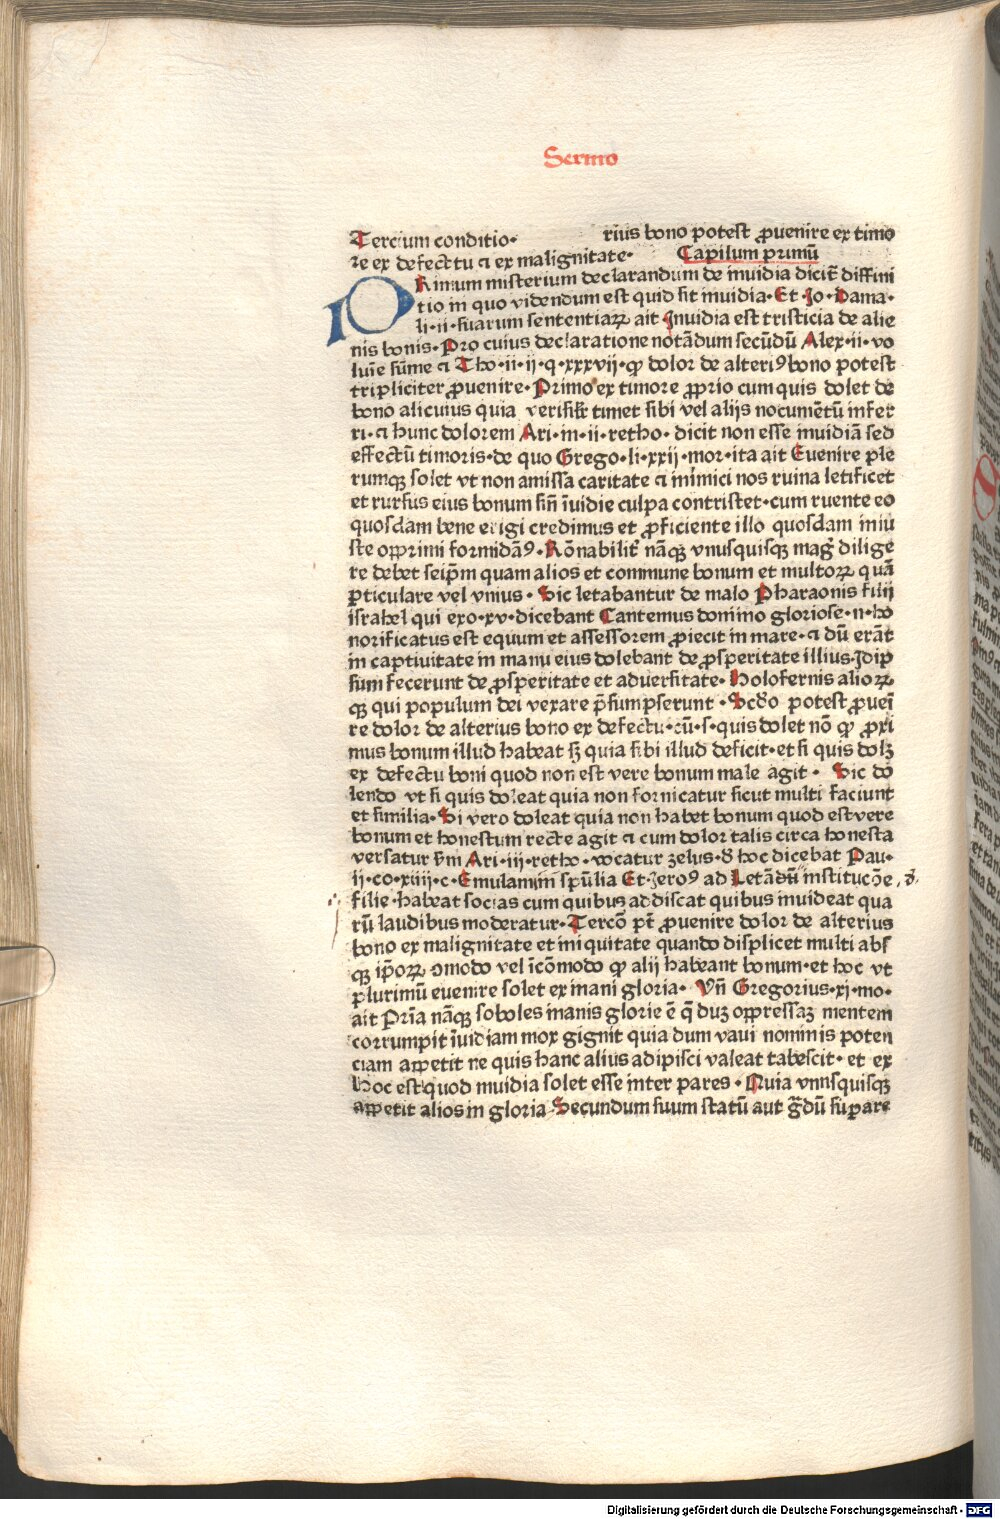 Sermo
Tercium conditio· rius bono potest ꝓuenire ex timo
re ex defecttu ⁊ ex malignitate· Capilum primū
PRimum misterium declarandum de inuidia dicit᷑ diffini
tio in quo videndum est quid sit inuidia· Et Jo· Dama·
li·ii·suarum sententiaꝝ ait Inuidia est tristicia de alie
nis bonis· Pro cuius declaratione notādum secūdū Alex·ii·vo
luīe sūme ⁊ Tho·ii·ii·q·xxxvii·ꝙ dolor de alteriꝰ bono potest
tripliciter ꝓuenire· Primo ex timore ꝓprio cum quis dolet de
bono alicuius quia verisilr timet sibi vel alijs nocumētū infer
ri·⁊ hunc dolorem Ari·in·ii·retho· dicit non esse inuidiā sed
effectū timoris·de quo Grego·li·xxij·mor·ita ait Euenire ple
rumqꝫ solet vt non amissa caritate ⁊ inimici nos ruina letificet
et rursus eius bonum sin̄ īuidie culpa contristet·cum ruente eo
quosdam bene erigi credimus et ꝓficiente illo quosdam iniu
ste opprimi formidāꝰ· Rōnabilit᷑ nāqꝫ vnusquisqꝫ mag᷑ dilige
re debet seip̄m quam alios et commune bonum et multoꝝ quā
ꝑticulare vel vnius· Sic letabantur de malo Pharaonis filij
israhel qui exo·xv·dicebant Cantemus domino gloriose·n·ho
norificatus est equum et assessorem ꝓiecit in mare·⁊ dū erāt
in captiuitate in manu eius dolebant de ꝓsperitate illius·Idip
sum fecerunt de ꝓsperitate et aduersitate· Holofernis alioꝝ
qꝫ qui populum dei vexare p̄sumpserunt· Scdo potest ꝓueī
re dolor de alterius bono ex defectu·cū·s·quis dolet nō ꝙ ꝓxi
mus bonum illud habeat sꝫ quia sibi illud deficit·et si quis dolꝫ
ex defectu boni quod non est vere bonum male agit· Sic do
lendo vt si quis doleat quia non fornicatur sicut multi faciunt
et similia· Si vero doleat quia non habet bonum quod est vere
bonum et honestum recte agit ⁊ cum dolor talis circa honesta
versatur s̄m Ari·iii·retho· vocatur zelus· d̛ hoc dicebat Pau·
ii·co·xiiii·c·Emulamini sp̄ulia Et Jeroꝰ ad Letādū institucōe
filie·habeat socias cum quibus addiscat quibus inuideat qua
rū laudibus moderatur· Tercō pōt ꝓuenire dolor de alterius
bono ex malignitate et iniquitate quando displicet multi abs
qꝫ ip̄oꝝ ꝯmodo vel īcōmodo ꝙ alij habeant bonum·et hoc vt
plurimū euenire solet ex inani gloria· Vn̄ Gregorius·xj·mo·
ait Pr̄ia nāqꝫ soboles inanis glorie ē q̄ duꝫ oppressaꝫ mentem
corrumpit īuidiam mox gignit quia dum vaui nominis poten
ciam appetit ne quis hanc alius adipisci valeat tabescit· et ex
hoc est quod inuidia solet esse inter pares· Quia vnnsquisqꝫ
appetit alios in gloria Secundum suum statū aut g̃dū supare
Digitalisierung gefördert durch die Deutsche Forschungsgemeinschaft - DFG